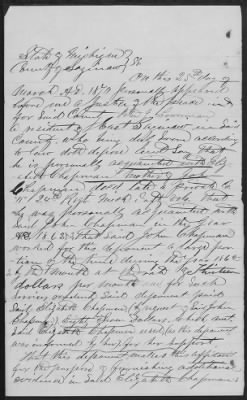 State of Michigan
County of Saginaw } SS
On this 25th day of
March A.D. 1870 personally appeared
before me a Justice of the peace in and
for Said County
a resident of East Saginaw in Said
County, who being duly sworn according
to law doth depose and Say that
he is personally acquainted with
Chapman Mother of John
Chapman decd late a private Co
Regt Mich Vols. That
he was personally acquainted with
Said John Chapman in the Year
and that Said John Chapman
worked for this deponent a large por
tion of the time during the year 186
by the month at
dollars per month and for Such
Service rendered Said deponent paid
Said Elizabeth Chapman by request of Said John
Chapman Eighty Dollars, which amt
Said Elizabeth Chapman used, (as this deponent
was informed by her) for her Support
That this deponent makes this affidavit
for the purpose of furnishing additional
evidence in Said Elizabeth Chapmans